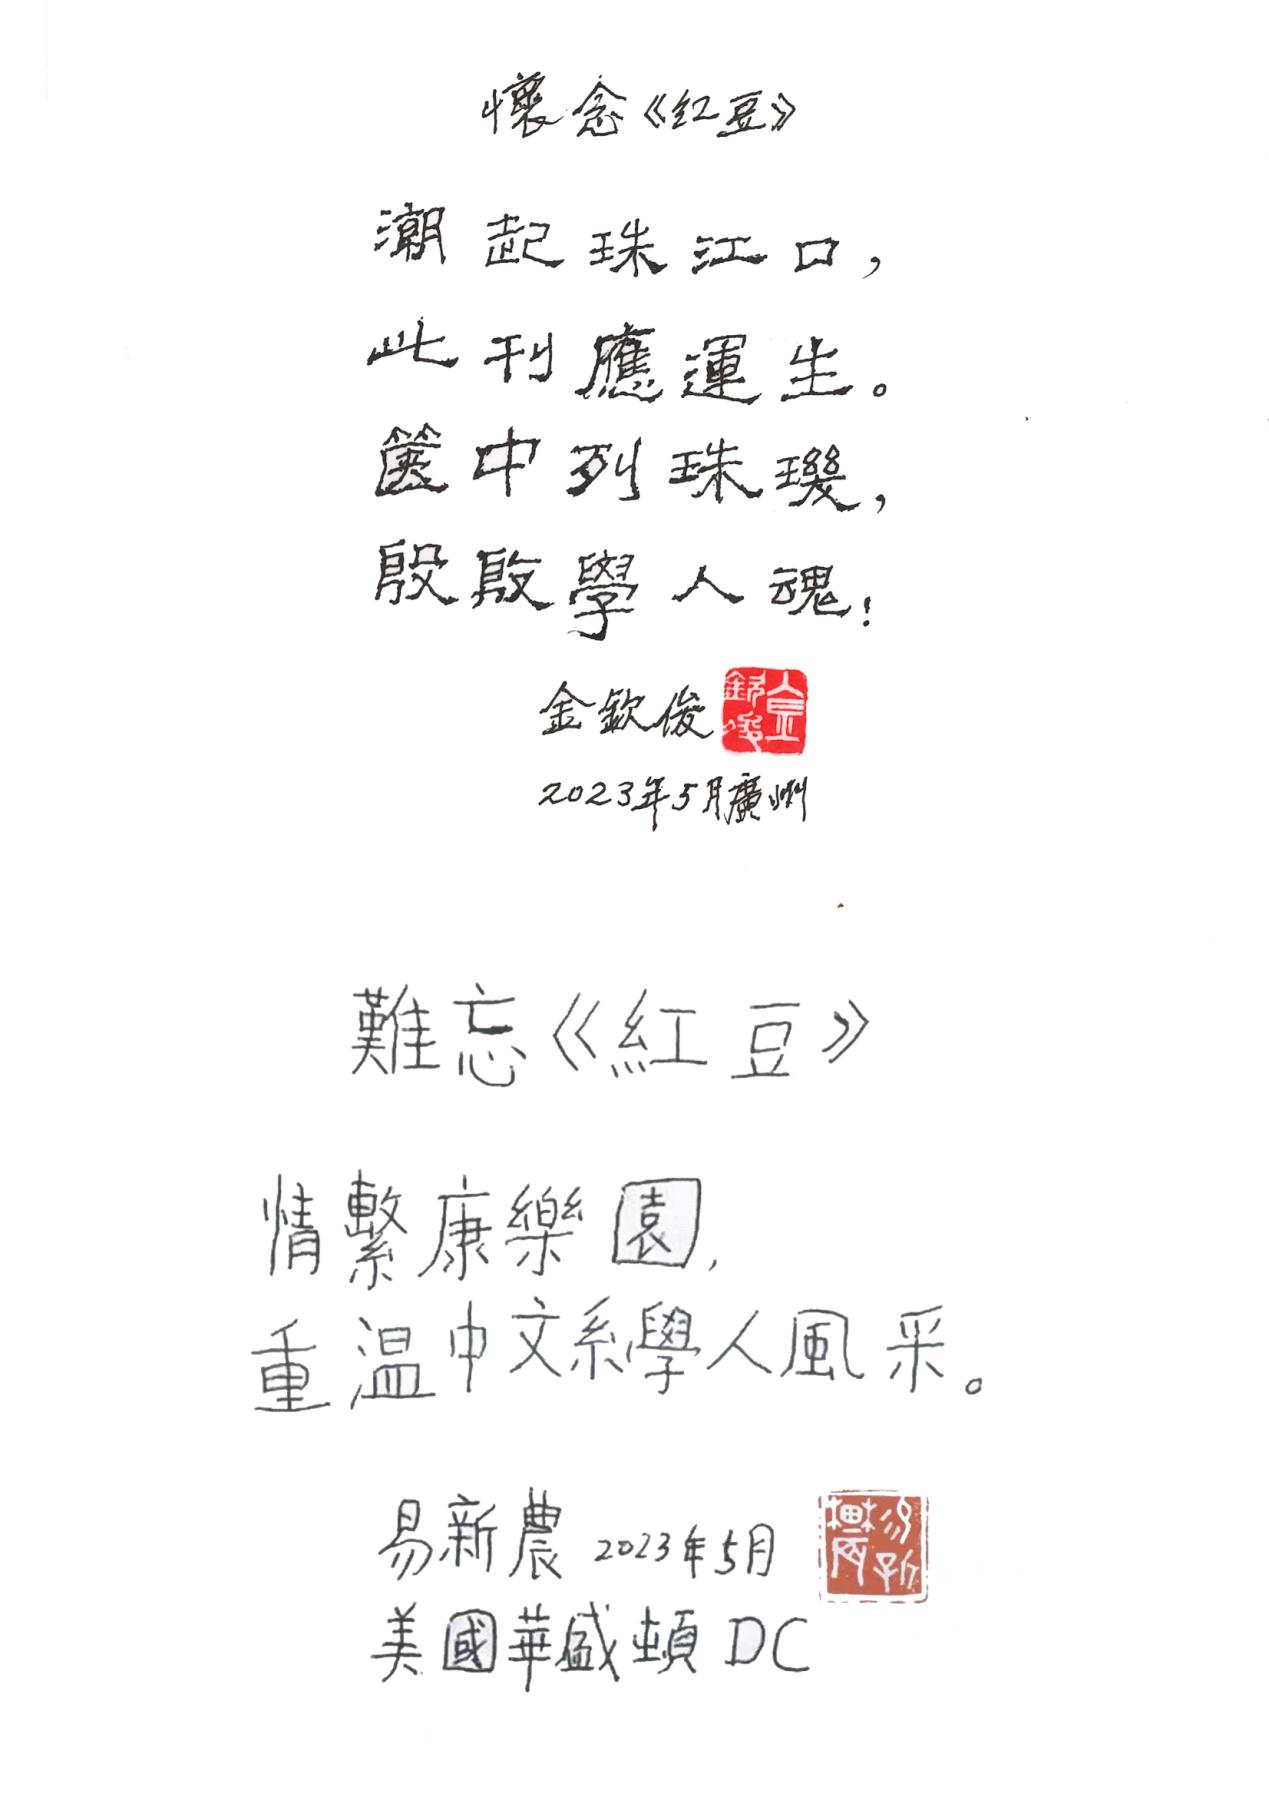 懷念《红豆》
潮起珠江口，
此刊應運生。
篋中列珠璣，
殷殷學人魂！
金欽俊
金欽俊
2023年5月廣州
難忘《紅豆》
情繫康樂園，
重温中文系學人風采。
易新農 2023年5月
易新農
美國華盛頓DC